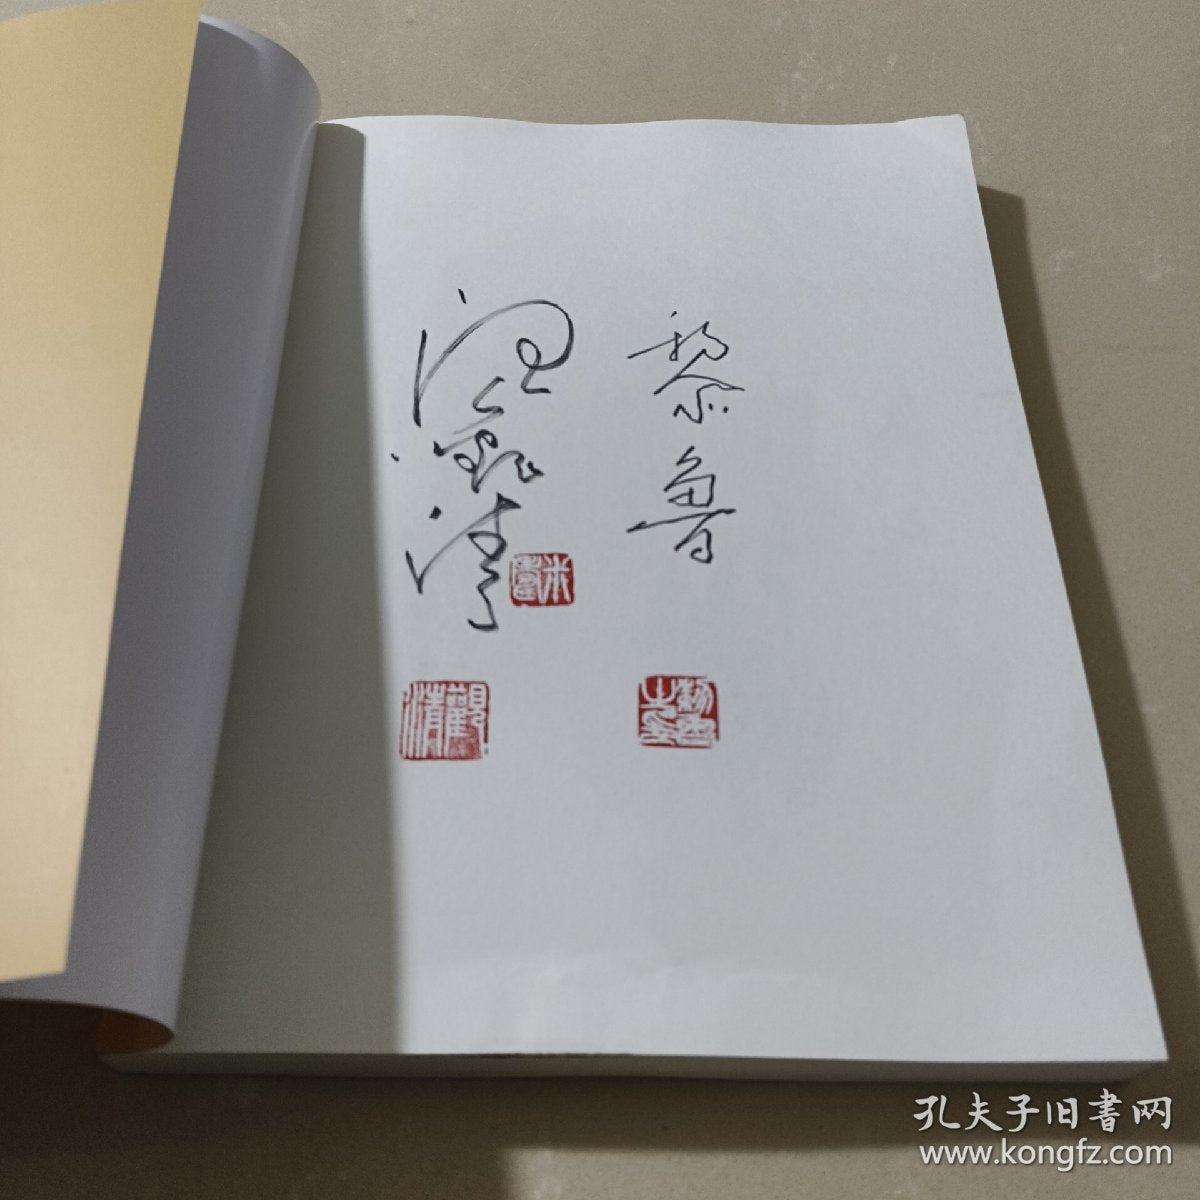 黎鲁
汪觀清
觀清
孔夫子旧書网
www.kongfz.com